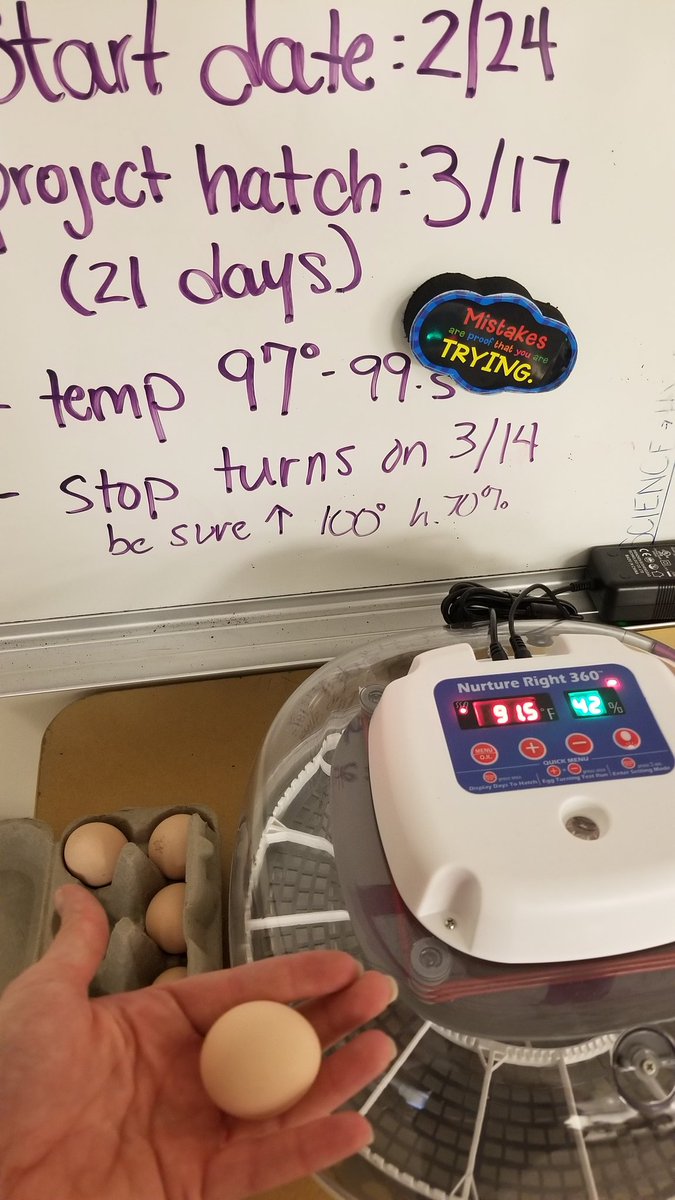 Start date: 2/24
project hatch: 3/17
(21 days)
Mistakes
are proof that you are
TRYING.
- temp 97° - 99.5
- stop turns on 3/14
be sure ↑ 100° h. 70%
SCIENCE
Nurture Right 360™
91.5 °F 42 %
MENU
O.K.
QUICK MENU
Display Days To Hatch
Egg Turning Test Run
Enter Setting Mode